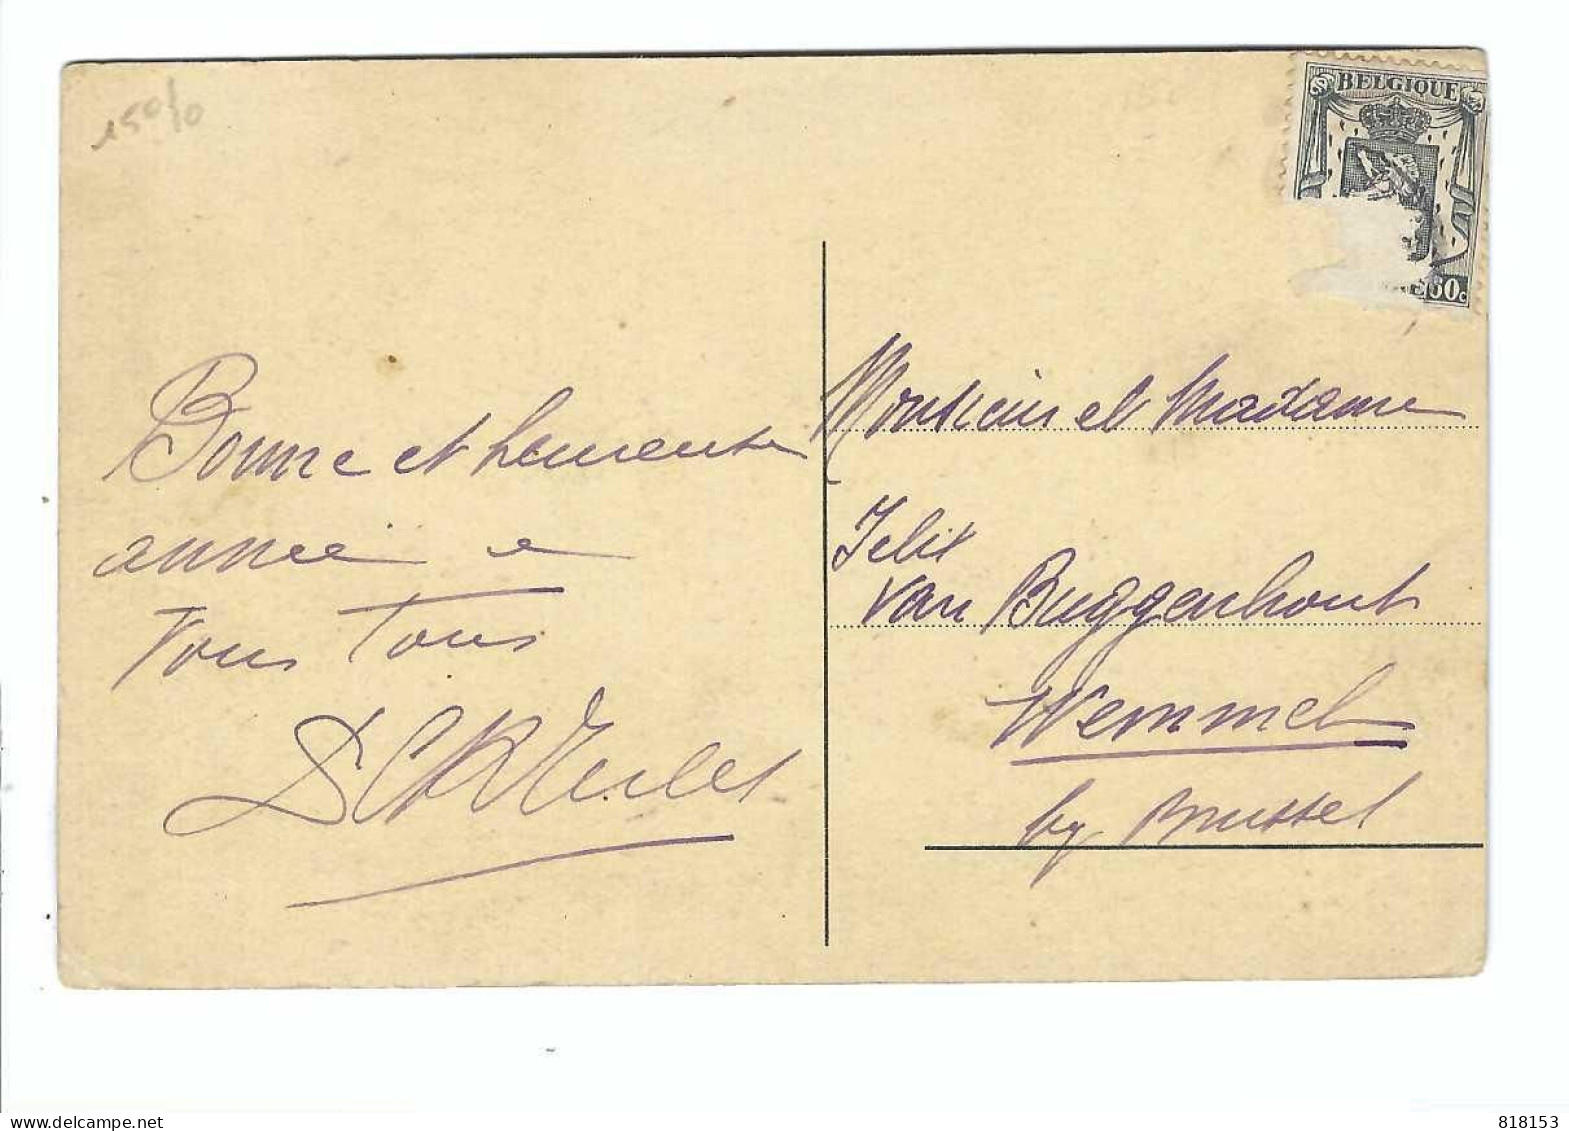 150/0
BELGIQUE
60c
Bonne et heureuse
année a
vous Tous
Monsieur et Madame
Felix
Van Buggenhout
Wemmel
by Brussel
www.delcampe.net
Walter1956
818153